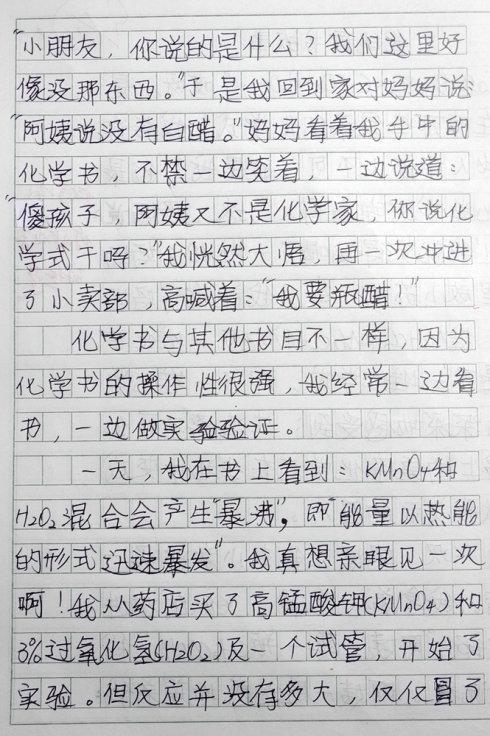 "小朋友，你说的是什么？我们这里好
像没那东西。"于是我回到家对妈妈说
"阿姨说没有白醋。"妈妈看着我手中的
化学书，不禁一边笑着，一边说道：
"傻孩子，阿姨又不是化学家，你说化
学式干吗？"我恍然大悟，再一次冲进
了小卖部，高喊着："我要瓶醋！"
化学书与其他书目不一样，因为
化学书的操作性很强，我经常一边看
书，一边做实验验证。
一天，我在书上看到：KMnO4和
H2O2混合会产生"暴沸"，即"能量以热能
的形式迅速暴发"。我真想亲眼见一次
啊！我从药店买了高锰酸钾(KMnO4)和
3%过氧化氢(H2O2)及一个试管，开始了
实验。但反应并没存多大，仅仅冒了